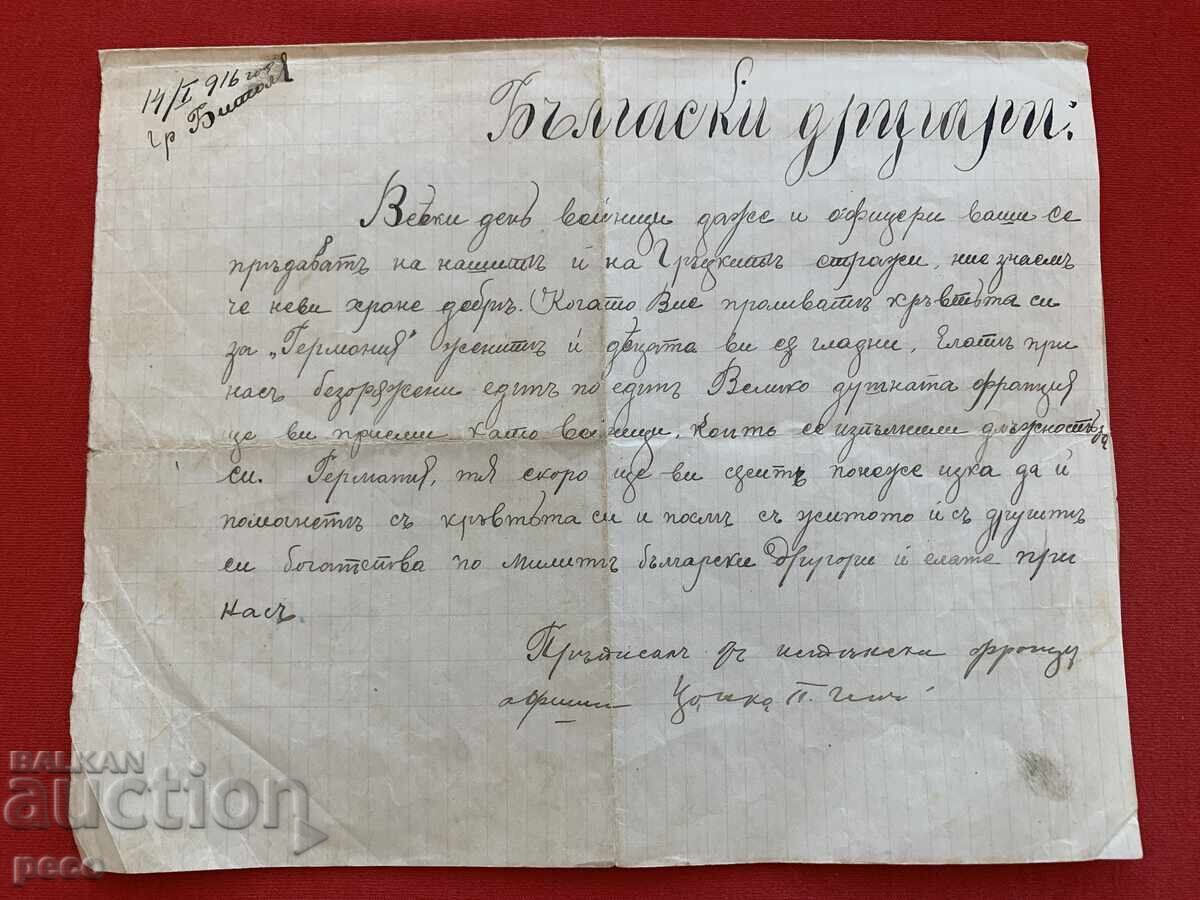 14/I 916 год
гр Битоля
Бългаски другари:
Всеки день войници даже и офицери ваши се
прѣдаватъ на нашитѣ и на Гръцкитѣ стражи, ние знаемъ
че неви хране добрѣ. Когато Вие проливатѣ кръвтъта си
за „Германия" женитѣ и дѣцата ви сѫ гладни, Елатѣ при
насъ безорѫжени единъ по единъ Велико душната франция
ще ви приеми като войници, които се изпълнили длъжностьта
си. Германия, тя скоро ще ви понеже иска да й
помогнетѣ съ кръвтъта си и послѣ съ житото и съ другитѣ
си богатства по милитѣ български Другари и елате при
насъ
Прѣписалъ отъ истински
Цонко П.
BALKAN
auction
peco